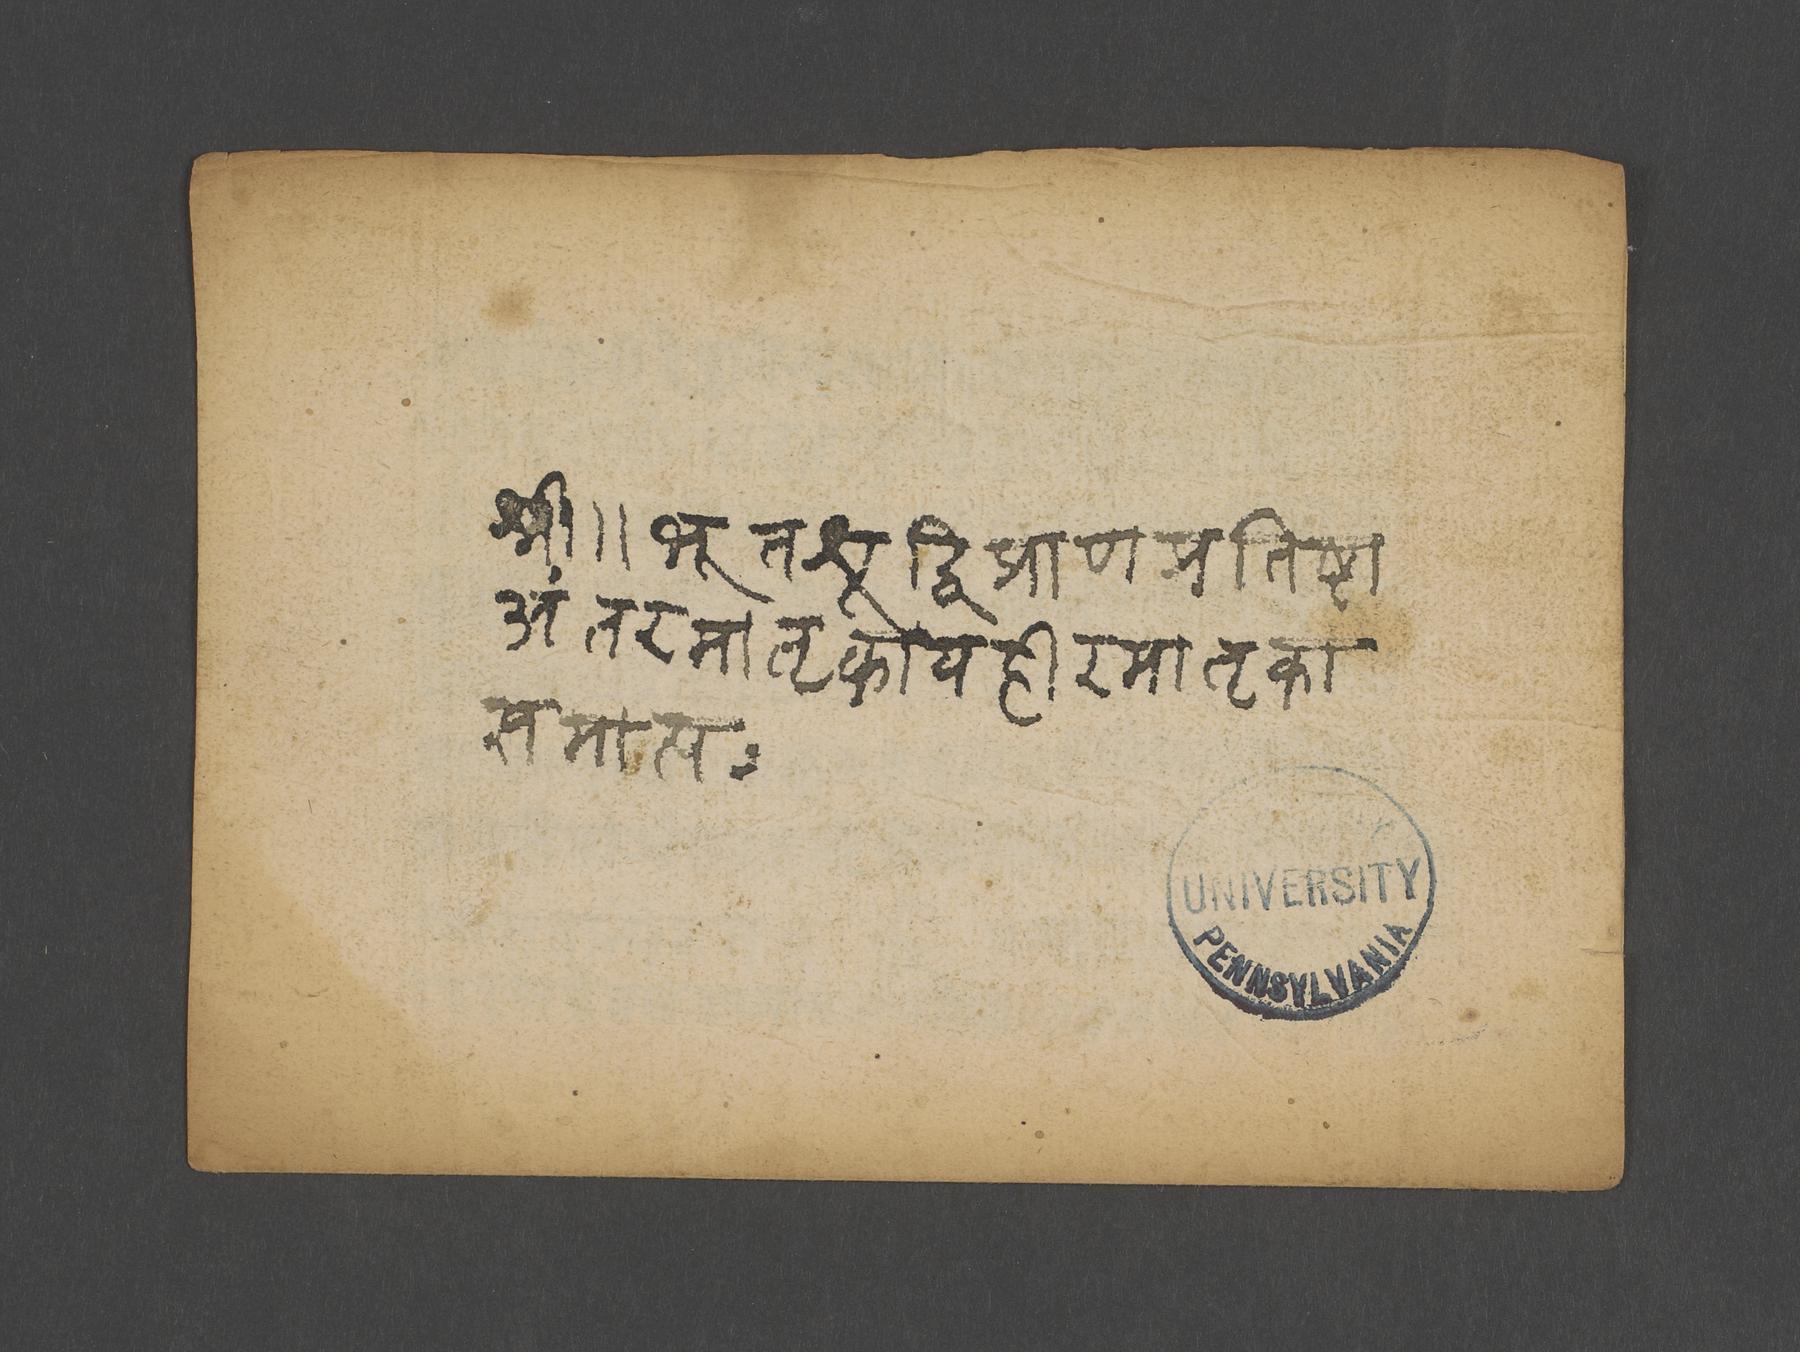 श्री॥ भूतशूद्धि प्राणप्रतिष्टा
अंतरमातृका वहीरमातृका
समाप्तः
UNIVERSITY
PENNSYLVANIA